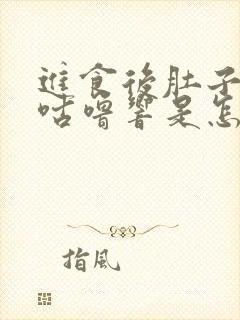 進食後肚子
咕嚕響是怎
指風